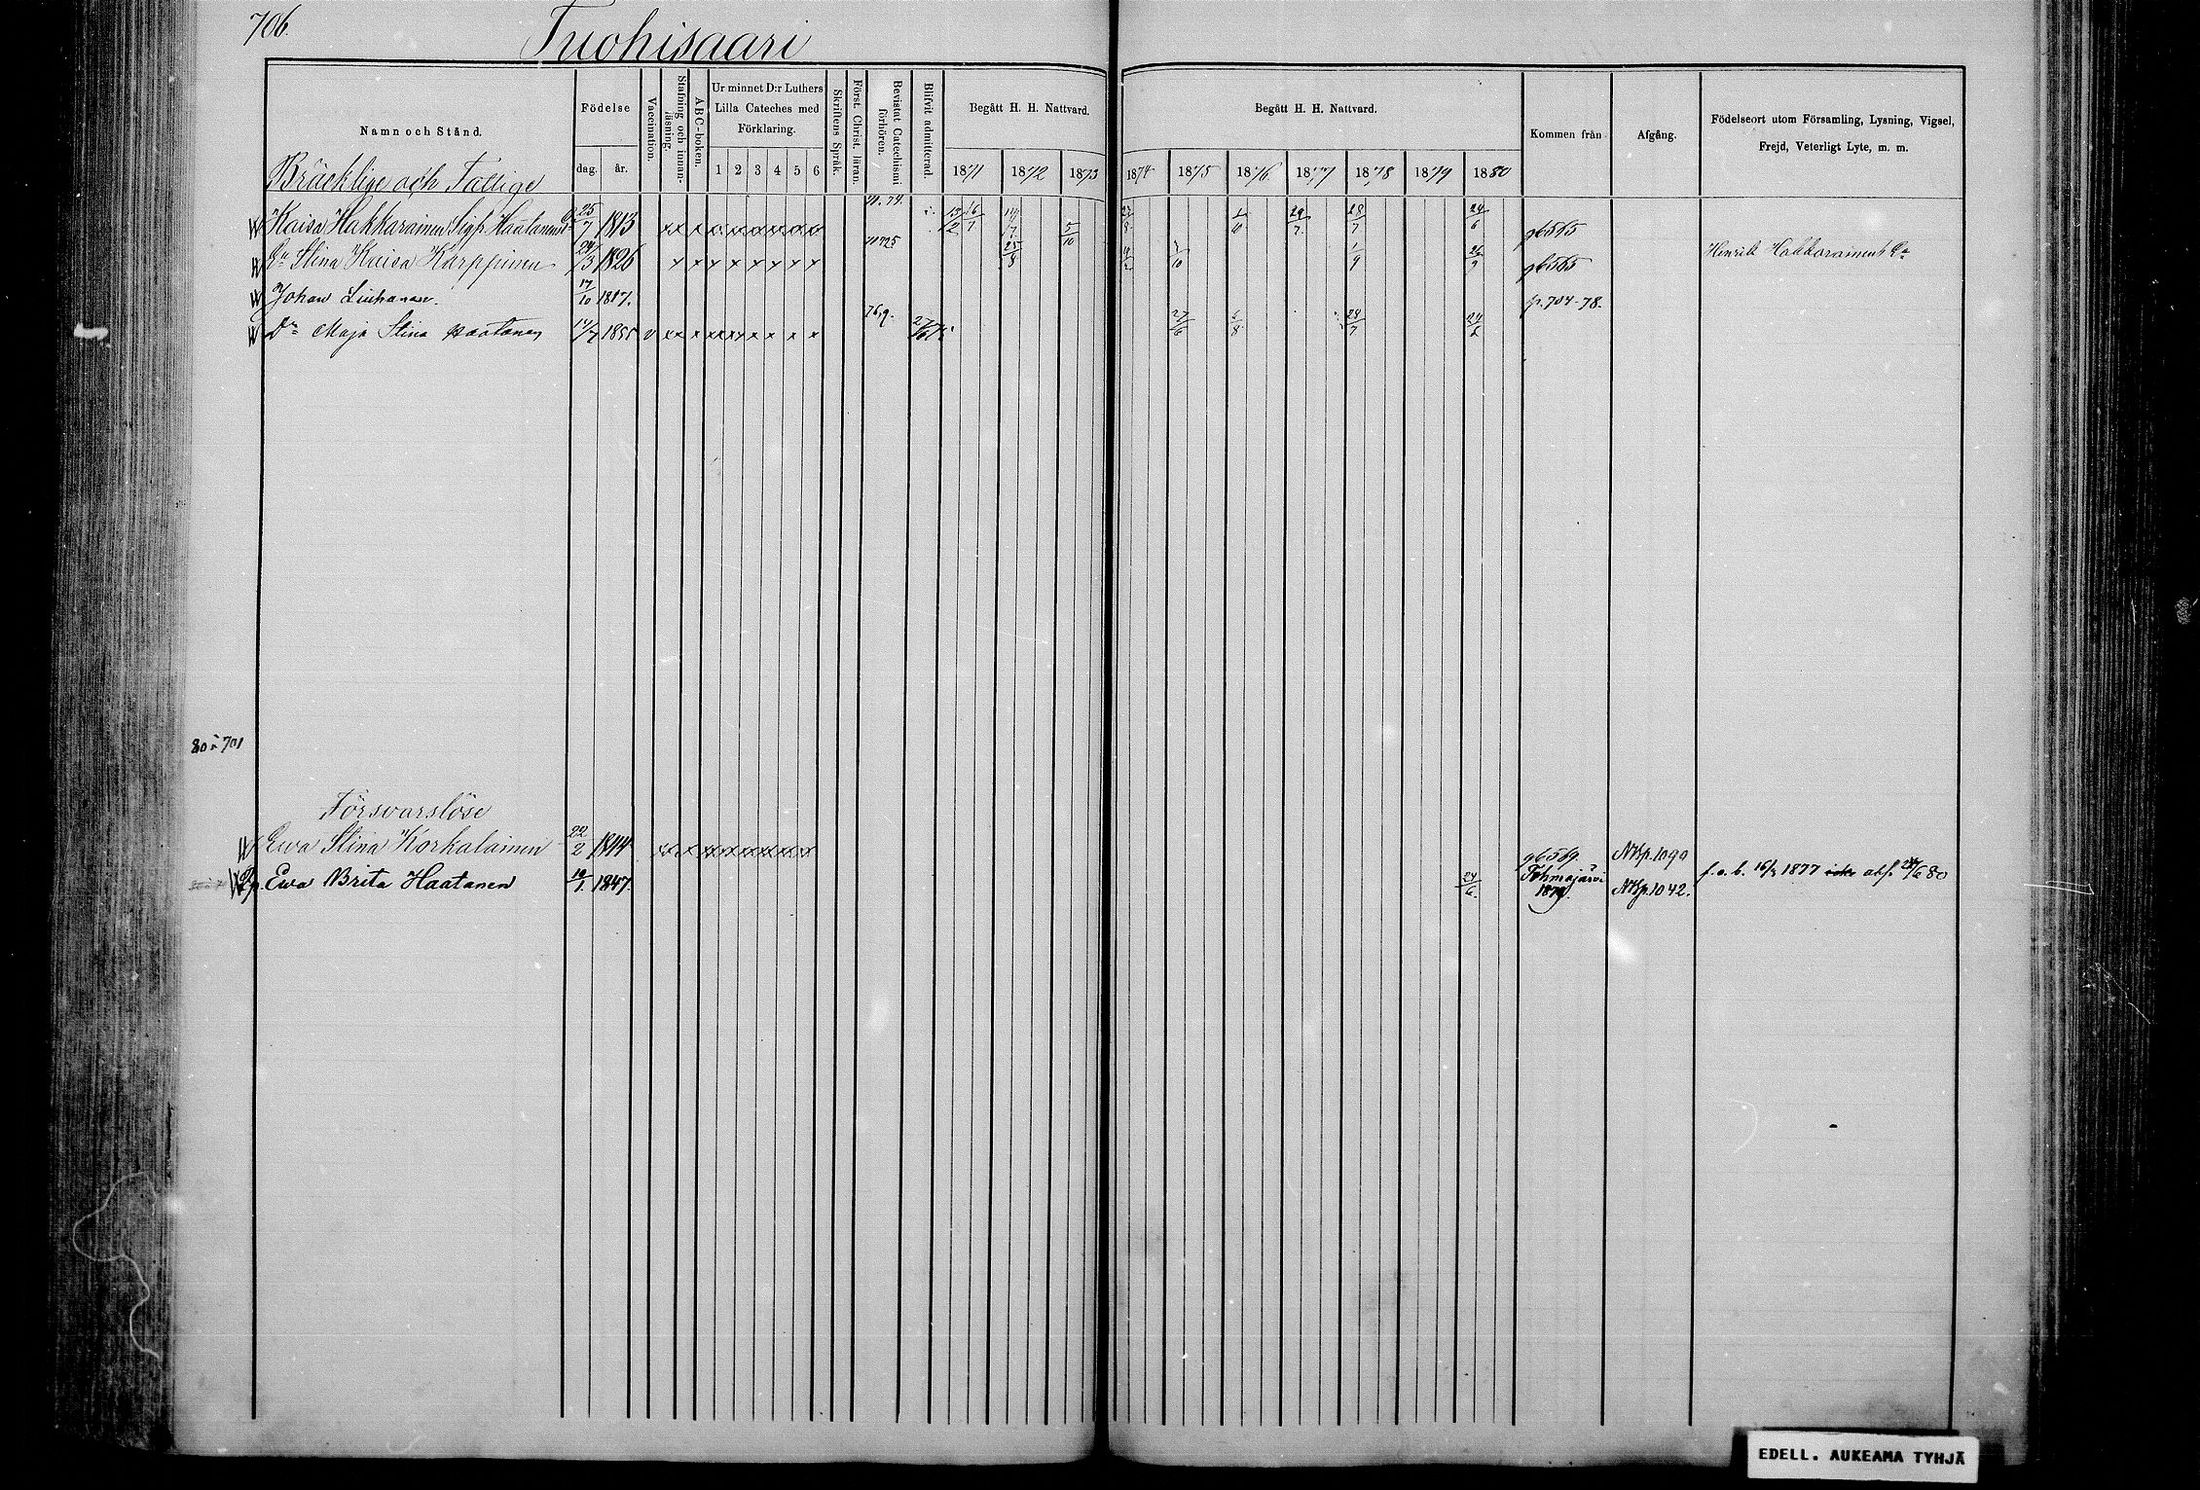 706.
Tuohisaari
Namn och Stånd.
Födelse
dag.
år.
Vaccination.
Stafning och innan-läsning.
ABC-boken.
Ur minnet D:r Luthers
Lilla Cateches med
Förklaring.
1 2 3 4 5 6
Skriftens Språk.
Först. Christ. läran.
Bevistat Catechismi förhören.
Blifvit admitterad.
Begått H. H. Nattvard.
1871 1872 1873
Begått H. H. Nattvard.
1874 1875 1876 1877 1878 1879 1880
Kommen från
Afgång.
Födelseort utom Församling, Lysning, Vigsel,
Frejd, Veterligt Lyte, m. m.
Bräcklige och Fattige
Kaisa Hakkarainen Sigf. Haatanens 25/7 1813 x x x x x x x x 13/2 16/7 5/10 1/10 29/7 28/7 24/6 g6565
Stina Kaisa Karppinen 24/3 1826 x x x x x x x x 25/8 1/9 26/9 g6565 Henrik Hakkarainens
Johan Liuhanen. 17/10 1817. fr. 704-78.
Dr Maja Stina Haatanen 1855 v xx x x x x x x x 27/6 28/7 24/6
80 å 701
Försvarslöse
Ewa Stina Korkalainen 22/2 1844 xx x x x x x x x g6569. NBp. 1090
Ewa Brita Haatanen 19/1. 1847. 24/6. Tohmajärvi 1879. NBp. 1042. f. o. b. 16/3 1877 abs. 24/6 80
EDELL. AUKEAMA TYHJÄ